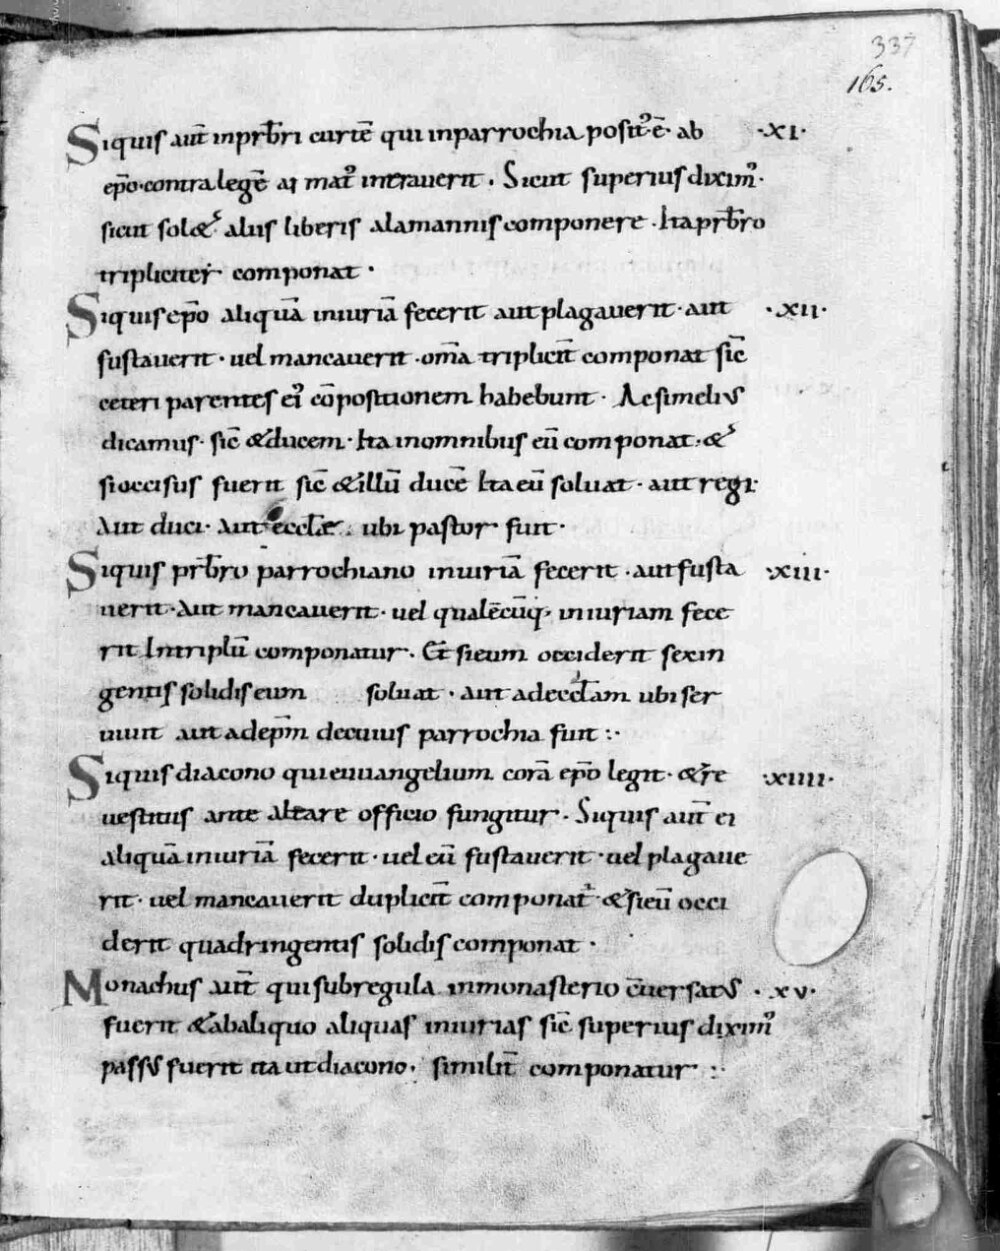 337
165.
Siquis aut̄ inpr̄bri curtē qui inparrochia posit᾽ ē· ab ·XI·
ep̄o· contra legē ai mat᾽ intrauerit. Sicut superius dixim᾽·
sicut sol& aliis liberis alamannis componere· Ita pr̄bro
tripliciter componat·
Siquis ep̄o aliquā iniuriā fecerit aut plagauerit· aut ·XII·
fustauerit· uel mancauerit· om̄a triplicit̄ componat sic̄
ceteri parentes ei᾽ cōpositionem habebunt· Ac similius
dicamus· sic̄ & ducem· Ita inomnibus eū componat· &
si occisus fuerit sic̄ & illū ducē Ita eū soluat· aut regi·
Aut duci· Aut eccłæ· ubi pastor fuit·
Siquis pr̄bro parrochiano iniuriā fecerit· aut fusta ·XIII·
uerit· Aut mancauerit· uel qualēcūq· iniuriam fece
rit Intriplū componatur. Et sieum occiderit sexin
gentis solidis eum soluat· aut adeccłam ubi ser
uiuit aut adep̄m decuius parrochia fuit :·
Siquis diacono qui euuangelium corā ep̄o legit· & re ·XIIII·
uestitus ante altare officio fungitur. Siquis aut̄ ei
aliquā iniuriā fecerit· uel eū fustauerit· uel plagaue
rit· uel mancauerit duplicit̄ componat· & sieū occi
derit quadringentis solidis componat·
Monachus aut̄ qui subregula inmonasterio c̄uersatus ·XV·
fuerit & abaliquo aliquas iniurias sic̄ superius dixim᾽
passus fuerit ita ut diacono· similit̄ componatur :·